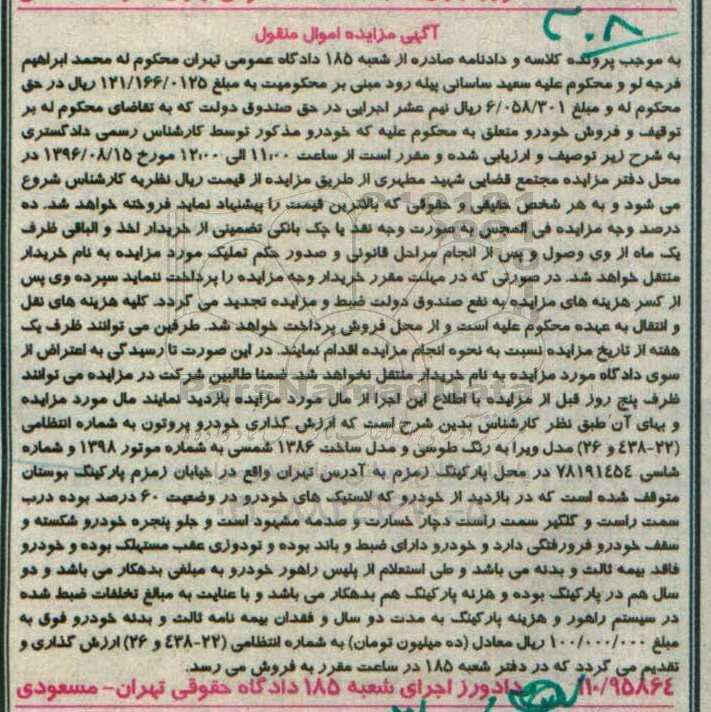 ۳۰۸
آگهی مزایده اموال منقول
به موجب پرونده کلاسه و دادنامه صادره از شعبه ۱۸۵ دادگاه عمومی تهران محکوم له محمد ابراهیم
فرجه لو و محکوم علیه سعید ساسانی پیله رود مبنی بر محکومیت به مبلغ ۱۲۱/۱۶۶/۰۱۲۵ ریال در حق
محکوم له و مبلغ ۶/۰۵۸/۳۰۱ ریال نیم عشر اجرایی در حق صندوق دولت که به تقاضای محکوم له بر
توقیف و فروش خودرو متعلق به محکوم علیه که خودرو مذکور توسط کارشناس رسمی دادگستری
به شرح زیر توصیف و ارزیابی شده و مقرر است از ساعت ۱۱:۰۰ الی ۱۲:۰۰ مورخ ۱۳۹۶/۰۸/۱۵ در
محل دفتر مزایده مجتمع قضایی شهید مطهری از طریق مزایده از قیمت ریال نظریه کارشناس شروع
می شود و به هر شخص حقیقی و حقوقی که بالاترین قیمت را پیشنهاد نماید فروخته خواهد شد. ده
درصد وجه مزایده فی المجس به صورت وجه نقد یا چک بانکی تضمینی از خریدار اخذ و الباقی ظرف
یک ماه از وی وصول و پس از انجام مراحل قانونی و صدور حکم تملیک مورد مزایده به نام خریدار
منتقل خواهد شد. در صورتی که در مهلت مقرر خریدار وجه مزایده را پرداخت ننماید سپرده وی پس
از کسر هزینه های مزایده به نفع صندوق دولت ضبط و مزایده تجدید می گردد. کلیه هزینه های نقل
و انتقال به عهده محکوم علیه است و از محل فروش پرداخت خواهد شد. طرفین می توانند ظرف یک
هفته از تاریخ مزایده نسبت به نحوه انجام مزایده اقدام نمایند. در این صورت تا رسیدگی به اعتراض از
سوی دادگاه مورد مزایده به نام خریدار منتقل نخواهد شد. ضمنا طالبین شرکت در مزایده می توانند
ظرف پنج روز قبل از مزایده با اطلاع این اجرا از مال مورد مزایده بازدید نمایند مال مورد مزایده
و بهای آن طبق نظر کارشناس بدین شرح است که ارزش گذاری خودرو پروتون به شماره انتظامی
(۲۲-۴۳۸ و ۲۶) مدل ویرا به رنگ طوسی و مدل ساخت ۱۳۸۶ شمسی به شماره موتور ۱۳۹۸ و شماره
شاسی ۷۸۱۹۱۴۵۴ در محل پارکینگ زمزم به آدرس تهران واقع در خیابان زمزم پارکینگ بوستان
متوقف شده است که در بازدید از خودرو که لاستیک های خودرو در وضعیت ۶۰ درصد بوده درب
سمت راست و گلگیر سمت راست دچار خسارت و صدمه مشهود است و جلو پنجره خودرو شکسته و
سقف خودرو فرورفتگی دارد و خودرو دارای ضبط و باند بوده و تودوزی عقب مستهلک بوده و خودرو
فاقد بیمه ثالث و بدنه می باشد و طی استعلام از پلیس راهور خودرو به مبلغی بدهکار می باشد و دو
سال هم در پارکینگ بوده و هزنه پارکینگ هم بدهکار می باشد و با عنایت به مبالغ تخلفات ضبط شده
در سیستم راهور و هزینه پارکینگ به مدت دو سال و فقدان بیمه نامه ثالث و بدنه خودرو فوق به
مبلغ ۱۰۰/۰۰۰/۰۰۰ ریال معادل (ده میلیون تومان) به شماره انتظامی (۲۲-۴۳۸ و ۲۶) ارزش گذاری و
تقدیم می گردد که در دفتر شعبه ۱۸۵ در ساعت مقرر به فروش می رسد.
۱۱۰/۹۵۸۶۴ دادورز اجرای شعبه ۱۸۵ دادگاه حقوقی تهران- مسعودی